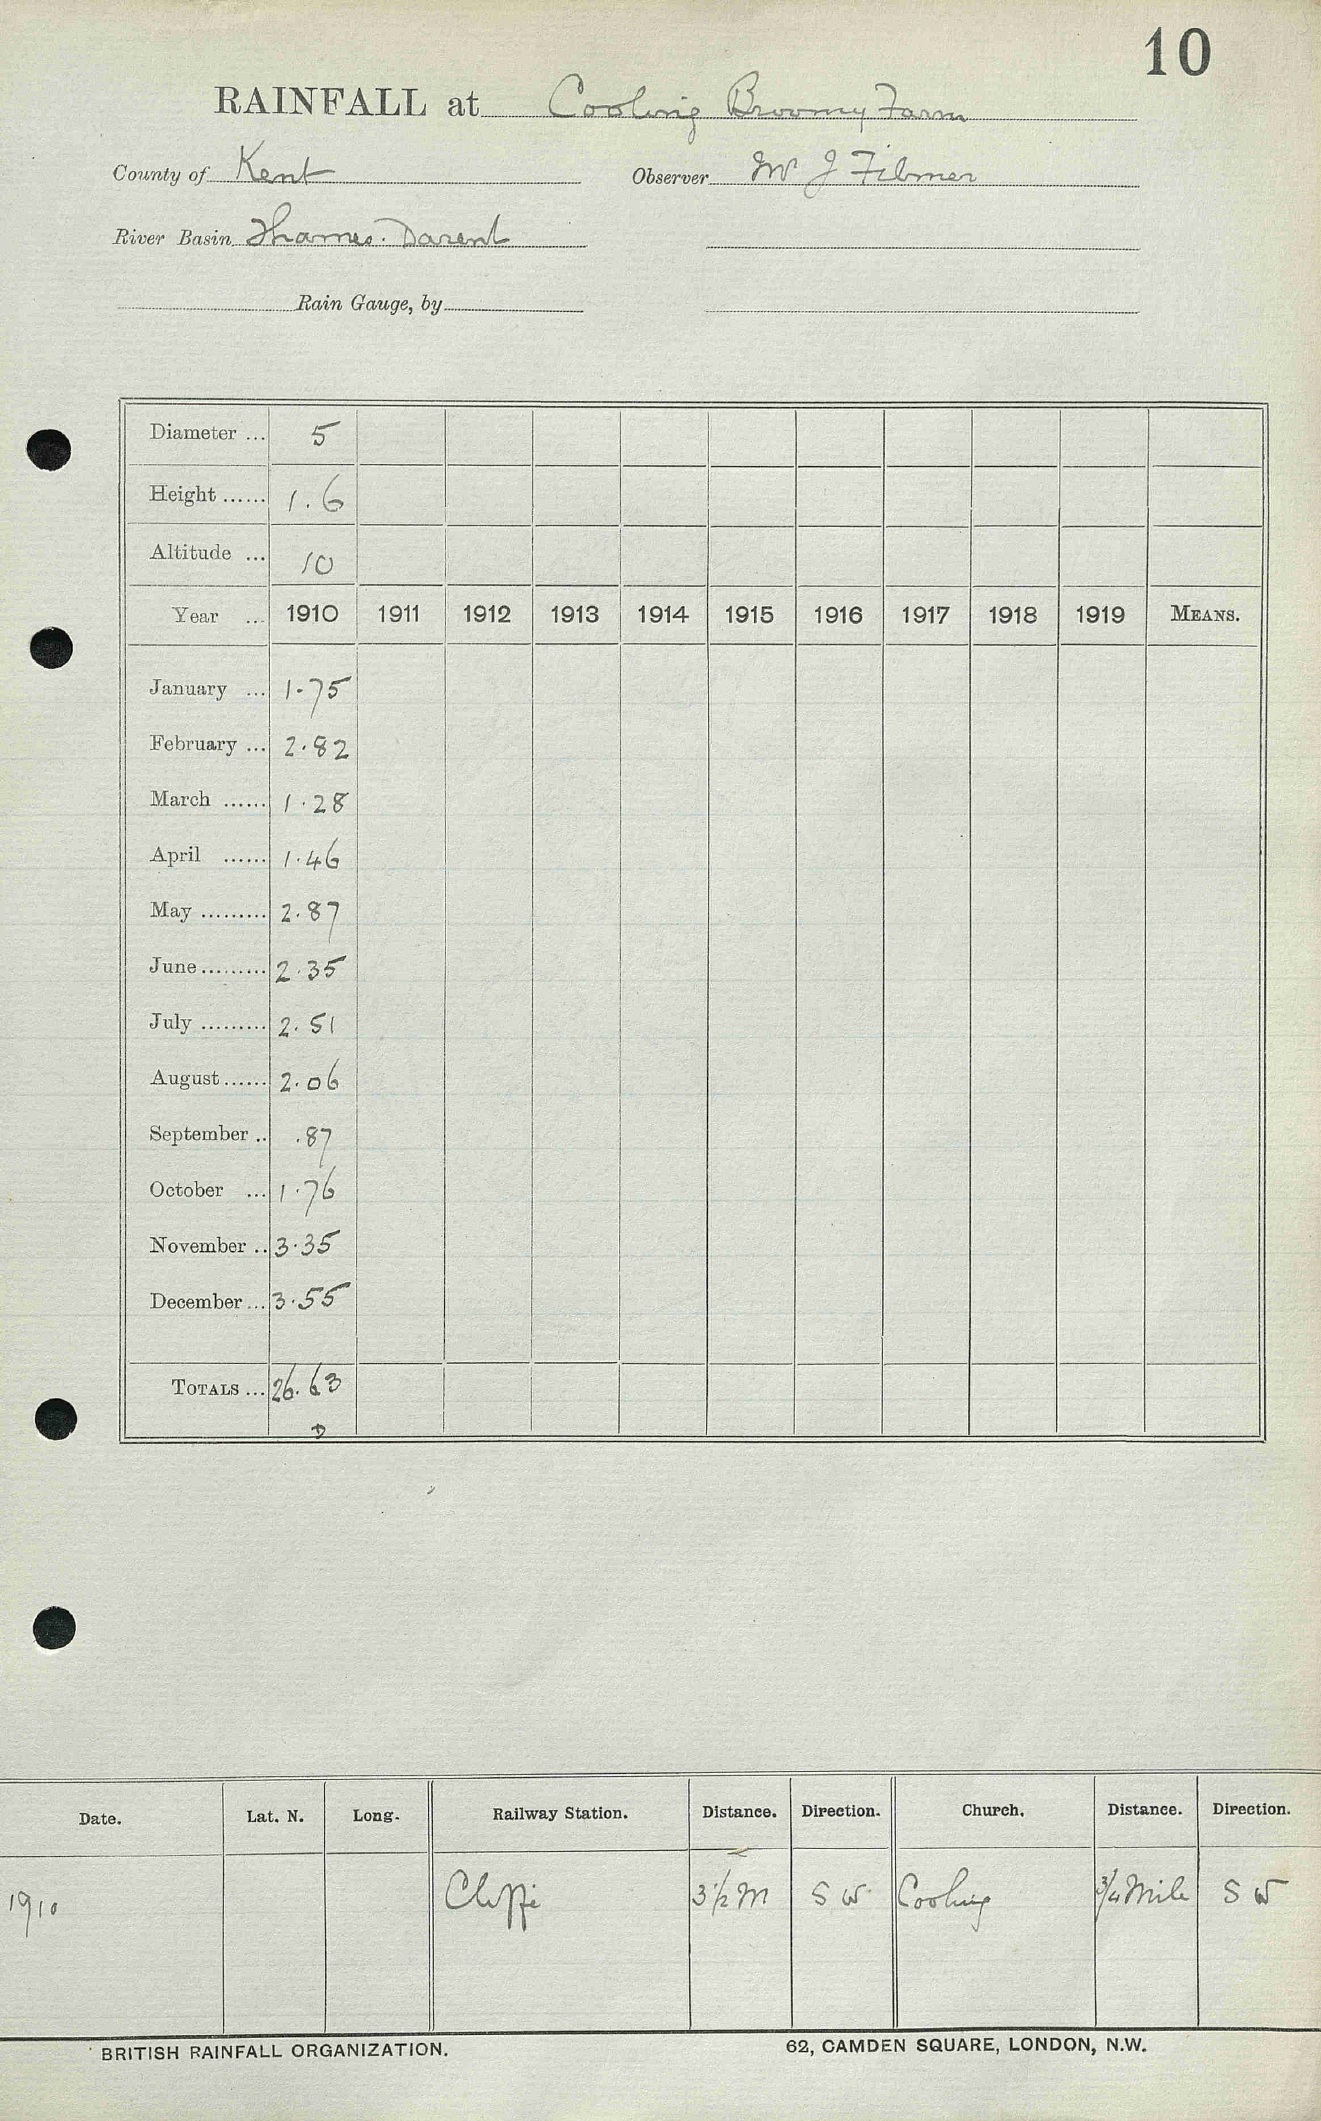 10
RAINFALL at Cooling Broomy Farm
County of Kent Observer Mr J Filmer
River Basin Thames. Darent
Rain Gauge, by
Diameter ... 5
Height ...... 1.6
Altitude ... 10
Year ... 1910 1911 1912 1913 1914 1915 1916 1917 1918 1919 MEANS.
January ... 1.75
February ... 2.82
March ...... 1.28
April ...... 1.46
May ......... 2.87
June ......... 2.35
July ......... 2.51
August ...... 2.06
September .. .87
October ... 1.76
November .. 3.35
December ... 3.55
TOTALS ... 26.63
Date. Lat. N. Long. Railway Station. Distance. Direction. Church. Distance. Direction.
1910 Cliffe 3 1/2 M S W Cooling 3/4 Mile S W
BRITISH RAINFALL ORGANIZATION. 62, CAMDEN SQUARE, LONDON, N.W.